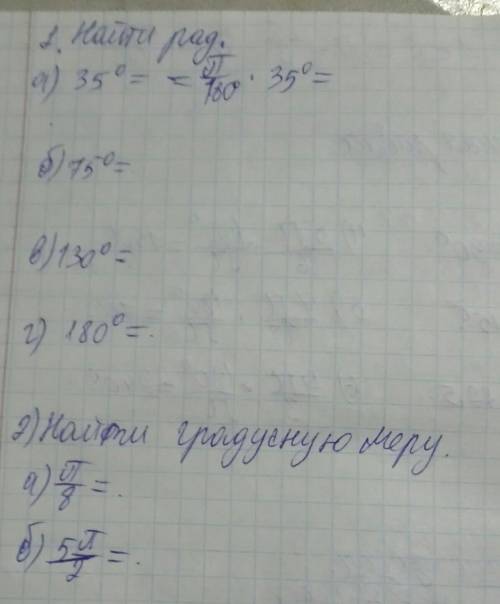 1. Найти рад.
а) 35° = = π/180° · 35° =
б) 75° =
в) 130° =
г) 180° = .
2) Найти градусную меру.
а) π/8 = .
б) 5π/2 = .